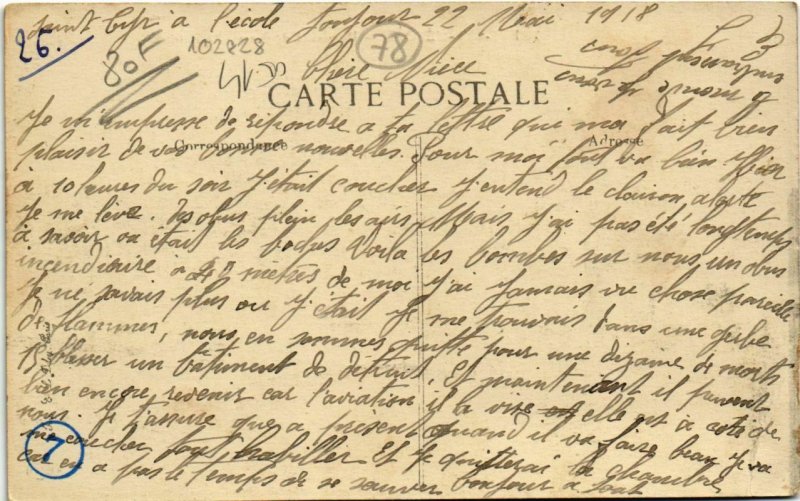 26.
Saint Cyr à l'école Toujour 22 Mai 1918
80F
102828
78
Chere Niece
CARTE POSTALE
Je m'impresse de repondre a ta lettre qui ma fait bien
Correspondance
Adresse
plaisir de vos bonne nouvelles. Pour moi tout va bien Hier
à 10 heures du soir J'était coucher J'entend le clairon alerte
Je me lève. Des obus plein les airs Mais j'ai pas été longtemps
à savoir ou était les boches Voila les bombes sur nous un obus
incendiaire à mètres de moi j'ai Jamais vu chose pareille
Je ne savais plus ou J'était Je me trouvais dans une gerbe
de flammes, nous en sommes quitte pour une dizaine de morts
15 blesser un bâtiment de détruit, Et maintenant il peuvent
bien encore revenir car l'aviation il a vise elle est à coté de
nous. Je t'assure que a présent quand il va faire beau Je va
me coucher tout habiller Et Je quitterai la chambre
car on a pas le temps de se sauver bonjour a tout
7